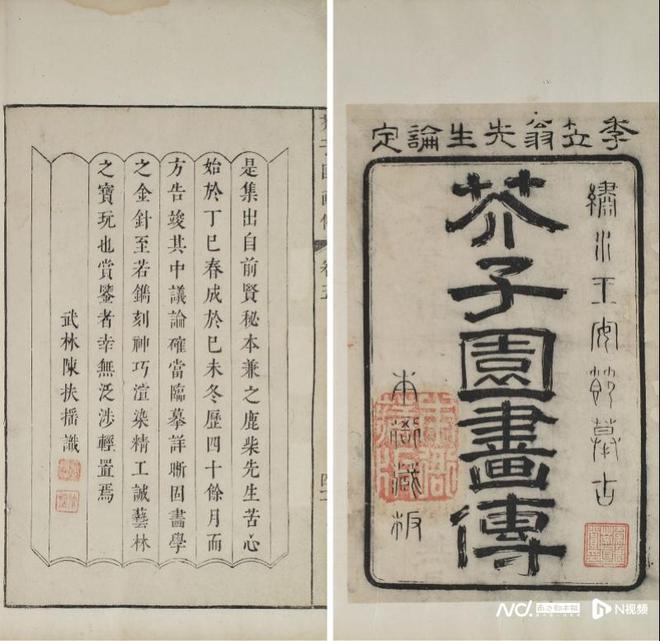 李笠翁先生論定
繡水王安節摹古
芥子園畫傳
本衙藏板
卷五
是集出自前賢秘本兼之鹿柴先生苦心
始於丁巳春成於巳未冬歷四十餘月而
方告竣其中議論確當臨摹詳晰固畫學
之金針至若鐫刻神巧渲染精工誠藝林
之寶玩也賞鑒者幸無泛涉輕置焉
武林陳扶搖識
南方都市报
N视频